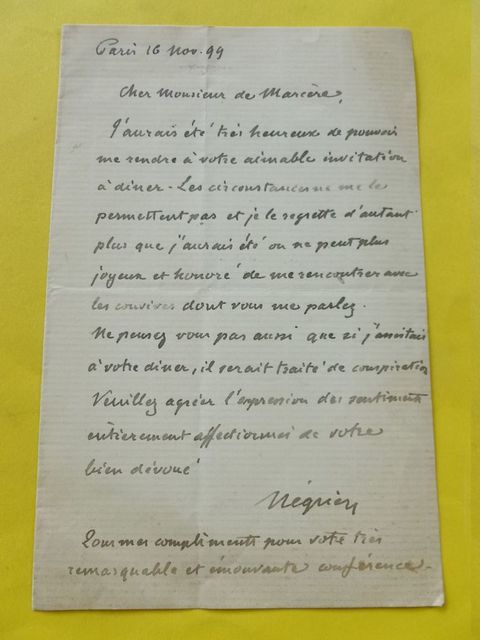 Paris 16 Nov. 99
Cher Monsieur de Marcère,
J'aurais été très heureux de pouvoir
me rendre à votre aimable invitation
à dîner. Les circonstances ne me le
permettent pas et je le regrette d'autant
plus que j'aurais été on ne peut plus
joyeux et honoré de me rencontrer avec
les convives dont vous me parlez.
Ne pensez vous pas aussi que si j'assistais
à votre dîner, il serait traité de conspiration
Veuillez agréer l'expression des sentiments
entièrement affectionnés de votre
bien dévoué
Négrier
Tous mes compliments pour votre très
remarquable et émouvante conférence.